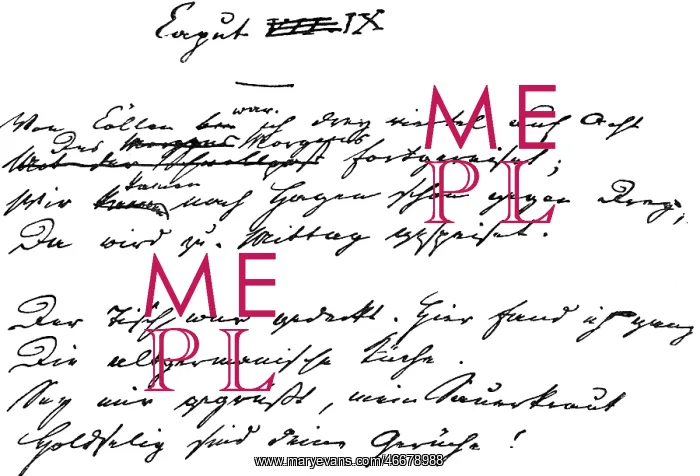 Caput VIII. IX
Von Cöllen bin war ich drey viertel auf Acht
Des Morgens Morgens
Mit der Schnellpost fortgereiset;
Wir kamen kamen nach Hagen schon gegen Drey,
Da wird zu Mittag gespeiset.
Der Tisch war gedeckt. Hier fand ich ganz
Die altgermanische Küche.
Sey mir gegrüßt, mein Sauerkraut
Holdselig sind deine Gerüche!
ME
PL
ME
PL
www.maryevans.com/46678988